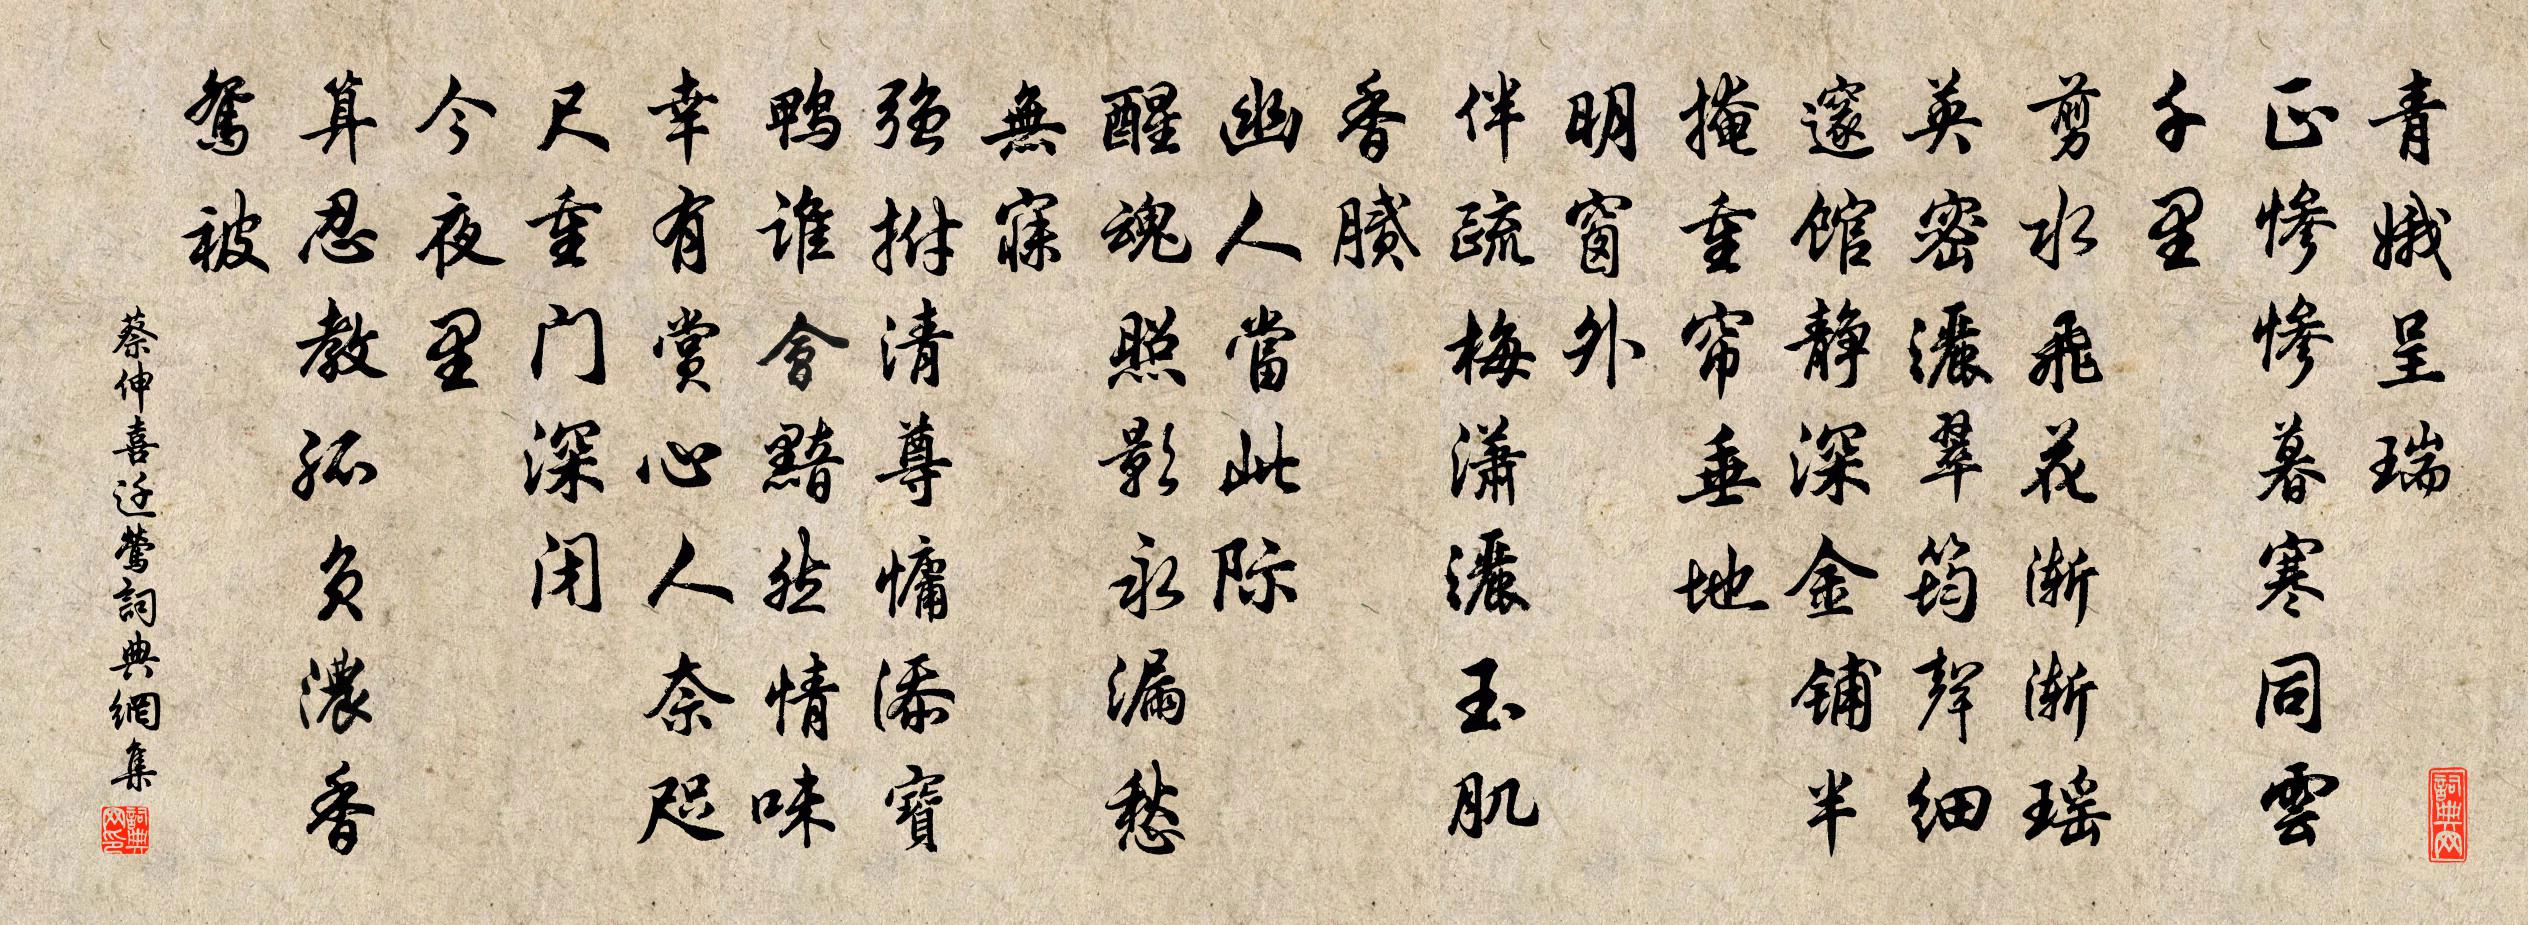 青娥呈瑞
正惨惨暮寒同雲
千里
剪水飛花渐渐瑶
英密灑翠筠聲细
邃馆静深金铺半
掩重帘垂地
明窗外
伴疏梅潇灑玉肌
香腻
幽人當此际
醒魂照影永漏愁
無寐
强拚清尊慵添寶
鸭谁會黯然情味
幸有赏心人奈咫
尺重门深闭
今夜里
算忍教孤负濃香
鸳被
蔡伸喜迁鶯詞典網集
詞典网
詞典网印